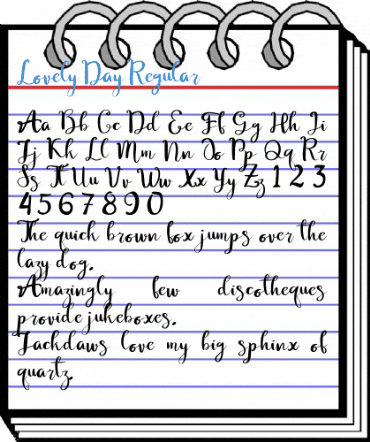 Lovely Day Regular
Aa Bb Cc Dd Ee Ff Gg Hh Ii
Jj Kk Ll Mm Nn Oo Pp Qq Rr
Ss Tt Uu Vv Ww Xx Yy Zz 1 2 3
4 5 6 7 8 9 0
The quick brown fox jumps over the
lazy dog.
Amazingly few discotheques
provide jukeboxes.
Jackdaws love my big sphinx of
quartz.